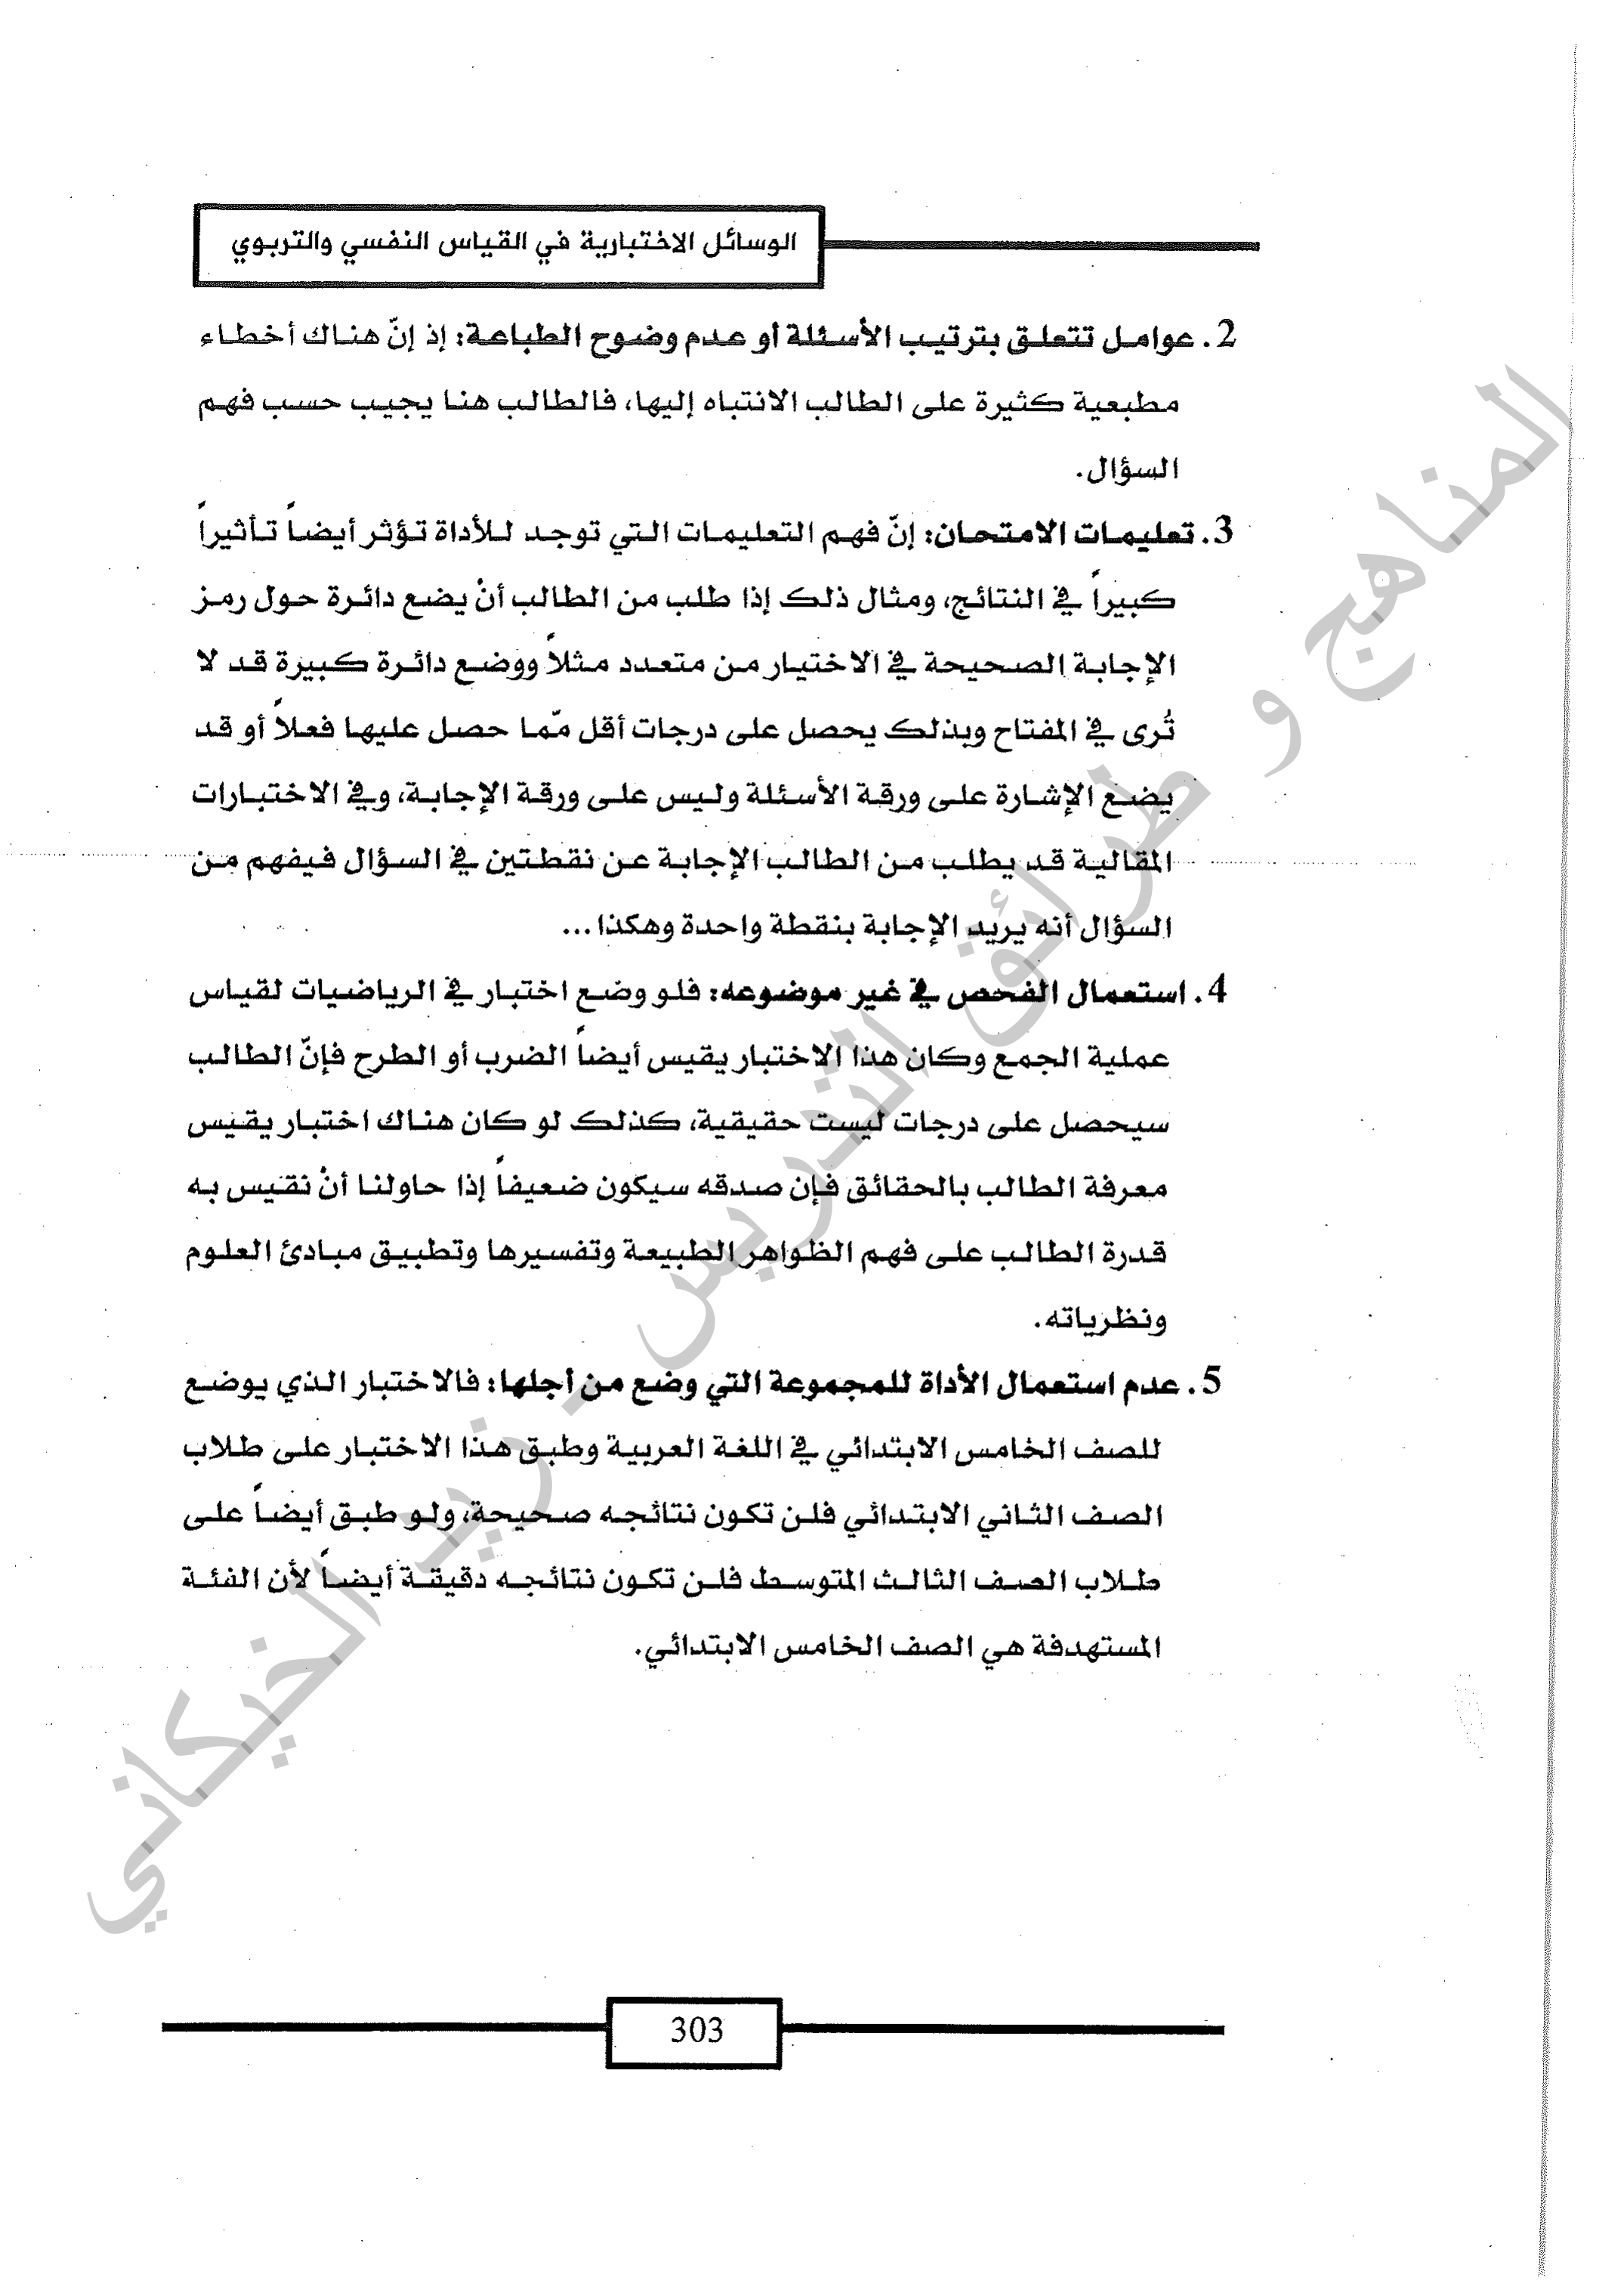 الوسائل الاختبارية في القياس النفسي والتربوي
2. عوامل تتعلق بترتيب الأسئلة أو عدم وضوح الطباعة: إذ إنّ هناك أخطاء
مطبعية كثيرة على الطالب الانتباه إليها، فالطالب هنا يجيب حسب فهم
السؤال.
3. تعليمات الامتحان: إنّ فهم التعليمات التي توجد للأداة تؤثر أيضاً تأثيراً
كبيراً في النتائج، ومثال ذلك إذا طلب من الطالب أنْ يضع دائرة حول رمز
الإجابة الصحيحة في الاختيار من متعدد مثلاً ووضع دائرة كبيرة قد لا
تُرى في المفتاح وبذلك يحصل على درجات أقل مّما حصل عليها فعلاً أو قد
يضع الإشارة على ورقة الأسئلة وليس على ورقة الإجابة، وفي الاختبارات
المقالية قد يطلب من الطالب الإجابة عن نقطتين في السؤال فيفهم من
السؤال أنه يريد الإجابة بنقطة واحدة وهكذا...
4. استعمال الفحص في غير موضوعه: فلو وضع اختبار في الرياضيات لقياس
عملية الجمع وكان هذا الاختبار يقيس أيضاً الضرب أو الطرح فإنّ الطالب
سيحصل على درجات ليست حقيقية، كذلك لو كان هناك اختبار يقيس
معرفة الطالب بالحقائق فإن صدقه سيكون ضعيفاً إذا حاولنا أنْ نقيس به
قدرة الطالب على فهم الظواهر الطبيعة وتفسيرها وتطبيق مبادئ العلوم
ونظرياته.
5. عدم استعمال الأداة للمجموعة التي وضع من أجلها: فالاختبار الذي يوضع
للصف الخامس الابتدائي في اللغة العربية وطبق هذا الاختبار على طلاب
الصف الثاني الابتدائي فلن تكون نتائجه صحيحة، ولو طبق أيضاً على
طلاب الصف الثالث المتوسط فلن تكون نتائجه دقيقة أيضاً لأن الفئة
المستهدفة هي الصف الخامس الابتدائي.
303
المناهج و طرائق التدريس - زيد الخيكاني